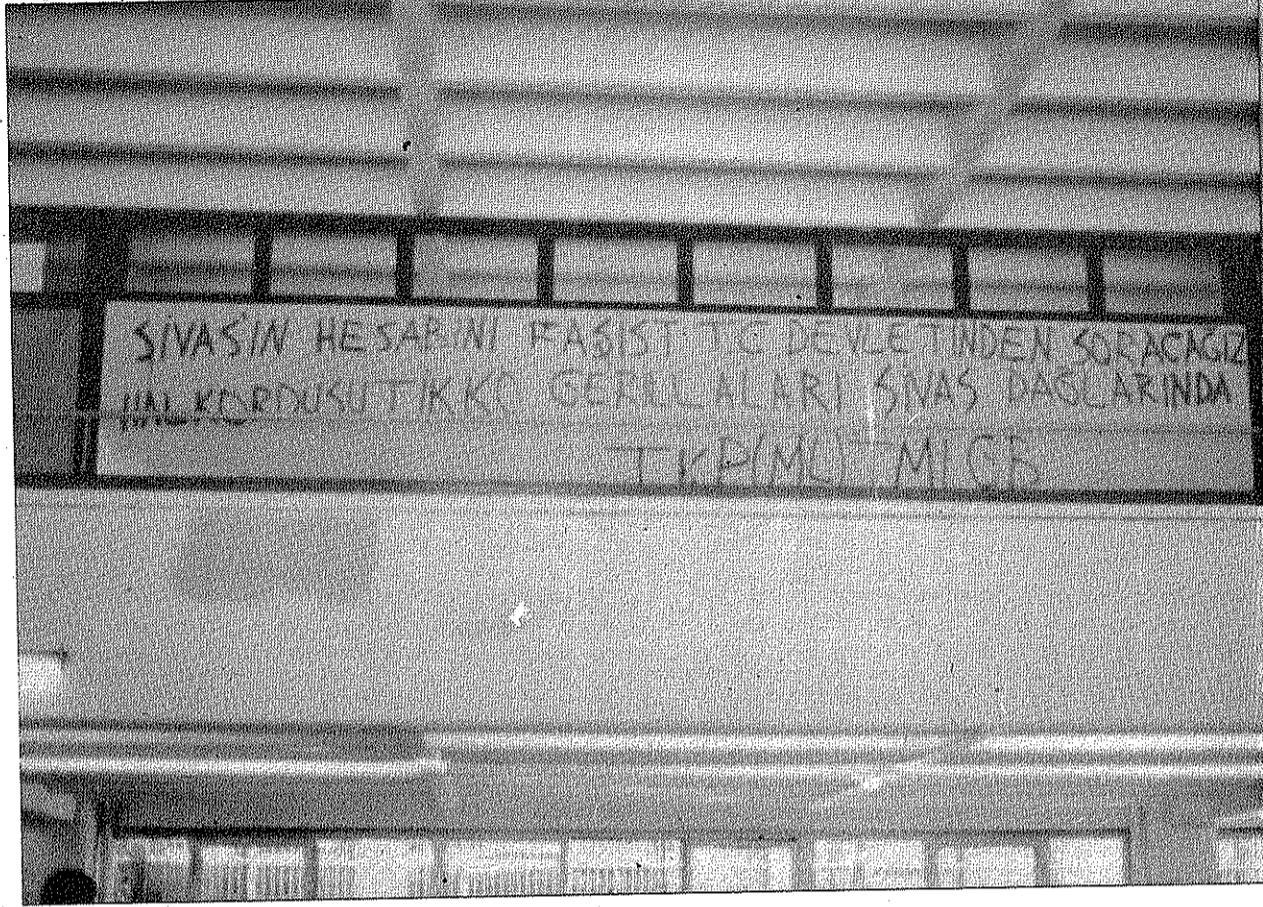 SİVAS'IN HESABINI FAŞİST TC DEVLETİNDEN SORACAĞIZ
HALK ORDUSU TİKKO GERİLLALARI SİVAS DAĞLARINDA
TKP(ML) TMLGB